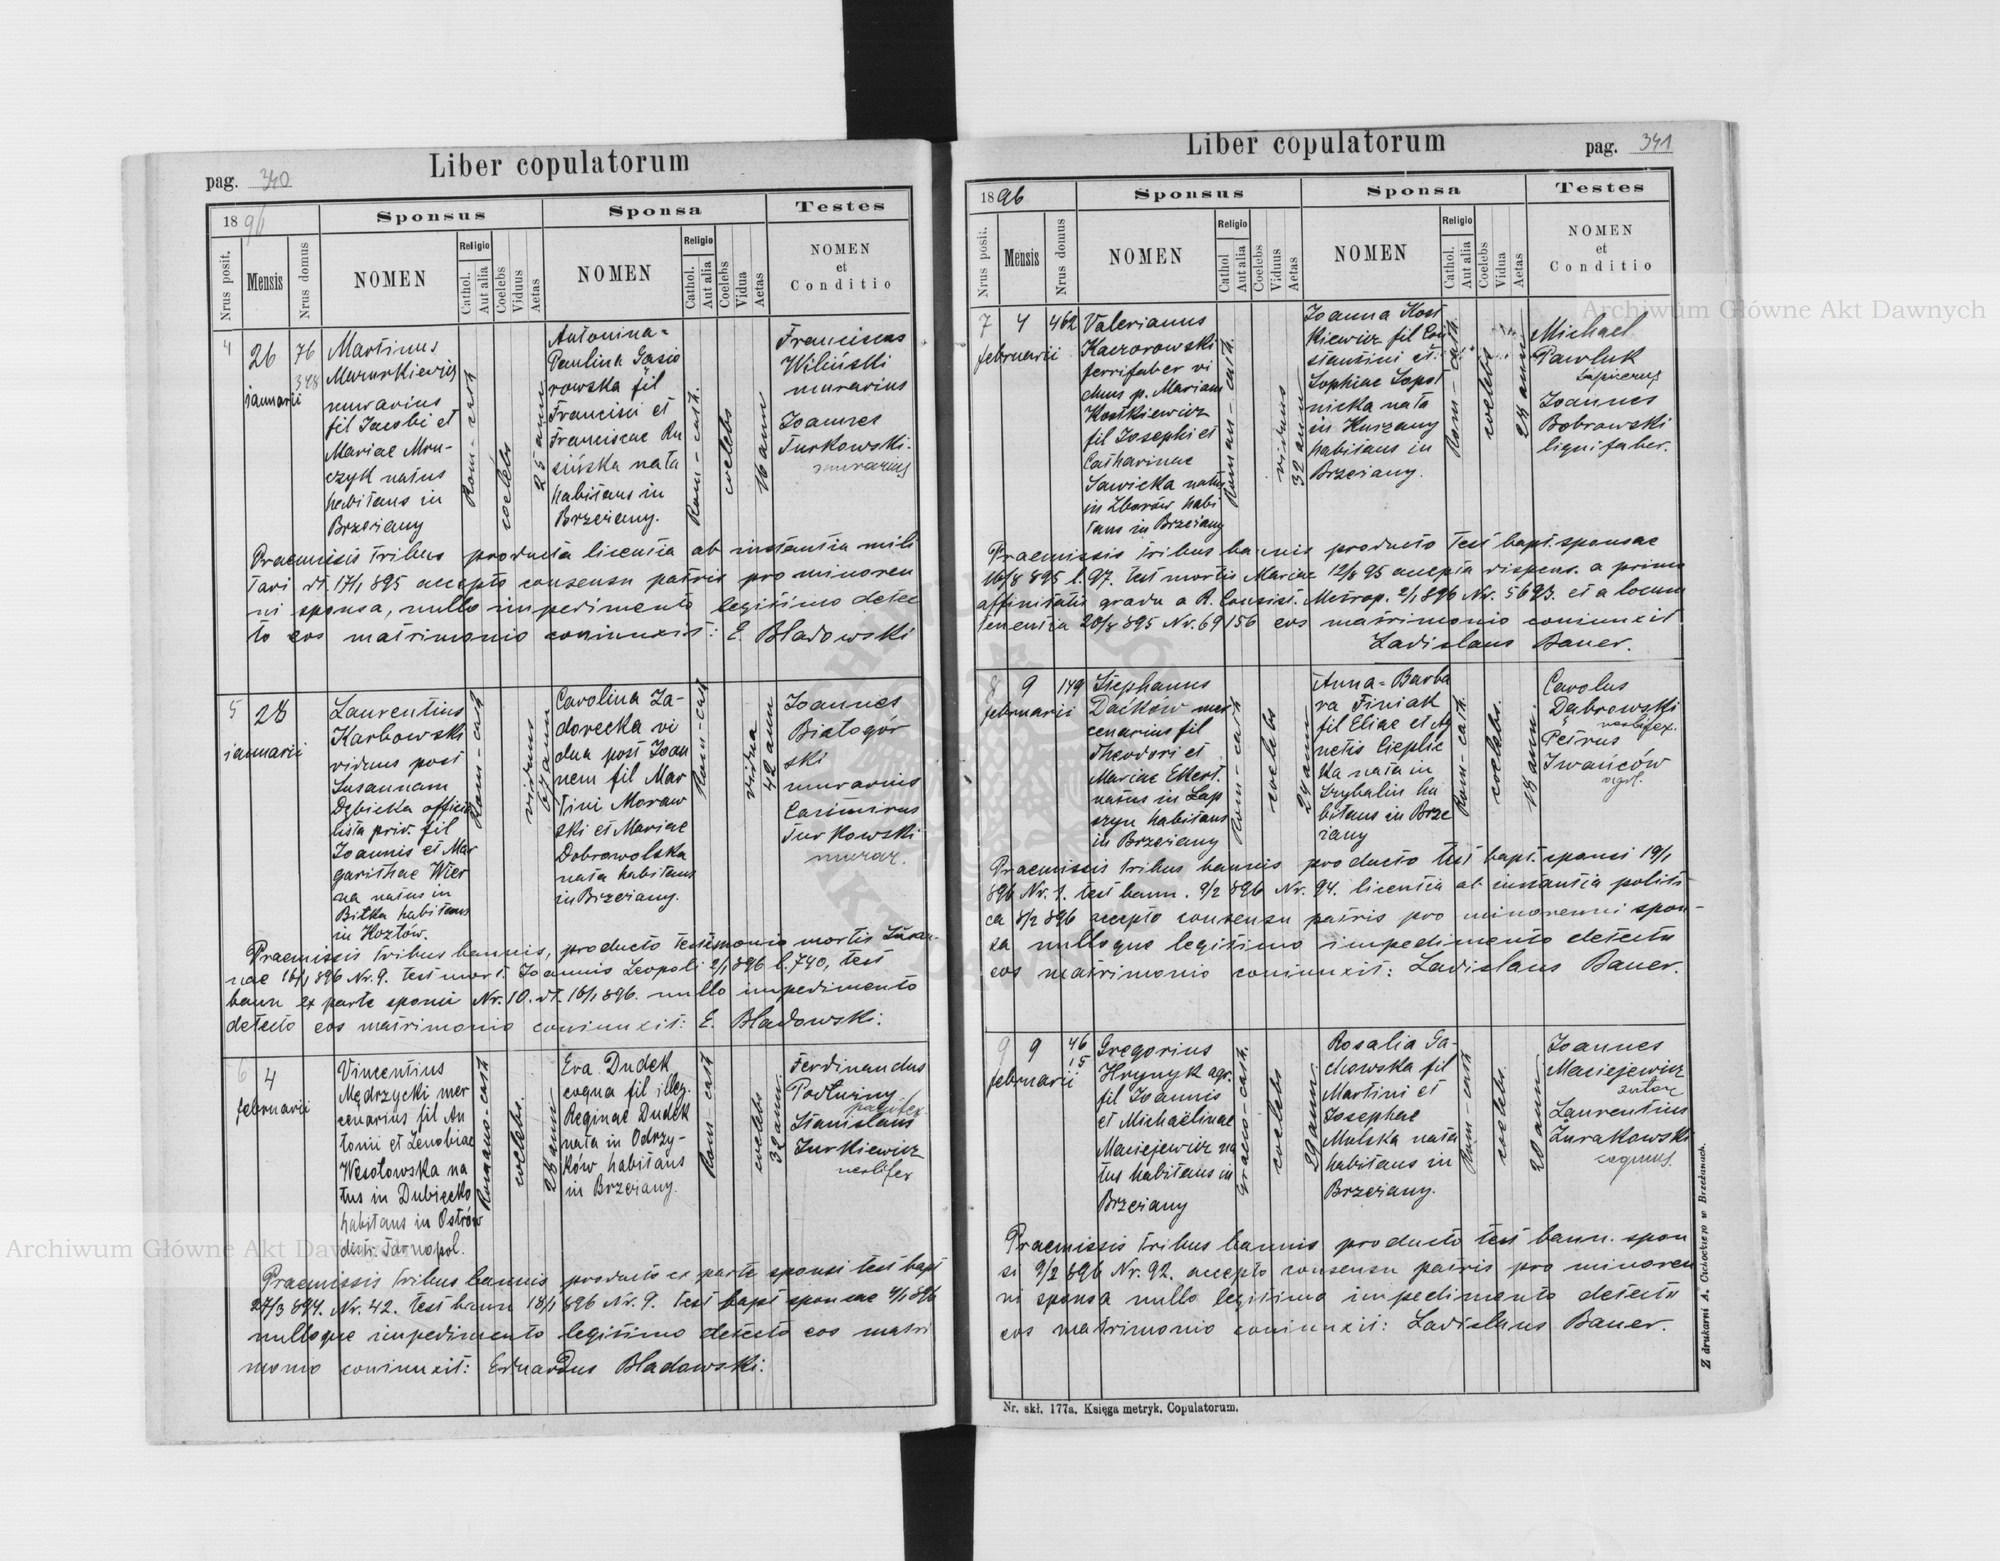 Liber copulatorum
pag. 340
18
Sponsus
Sponsa
Testes
Nrus posit.
Mensis
Nrus domus
NOMEN
Religio
Cathol.
Aut alia
Coelebs
Viduus
Aetas
NOMEN
Religio
Cathol.
Aut alia
Coelebs
Vidua
Aetas
NOMEN
et
Conditio
4
26
januarii
76
348
Martinus
Mazurkiewicz
murarius
fil Jacobi et
Mariae Mru-
czyk natus
habitans in
Brzeżany
Rom-cath
coelebs
25 ann
Antonina-
Paulina Gąsio
rowska fil
Francisci et
Franciscae Ru
sińska nata
habitans in
Brzeżany.
Rom-cath.
coelebs
16 ann
Franciscus
Wiliński
murarius
Joannes
Turkowski
murarius
Praemissis tribus producta licentia ab instantia mili
tari dt. 17/1 895 accepto consensu patris pro minoren
ni sponsa, nullo impedimento legitimo detec
to eos matrimonio coniunxit: E. Bladowski
5
28
januarii
Laurentius
Karbowski
viduus post
Susannam
Dębicka offici
lista priv. fil
Joannis et Mar
garithae Wier
na natus in
Bitka habitans
in Kozłów.
Rom-cath
viduus
67 ann
Carolina Za-
dorecka vi
dua post Joan
nem fil Mar
tini Moraw
ski et Mariae
Dobrowolska
nata habitans
in Brzeżany.
Rom-cath
vidua
42 ann
Joannes
Białogór
ski
murarius
Casimirus
Turkowski
murar.
Praemissis tribus bannis, producto testimonio mortis Susan-
nae 18/1 896 Nr. 9. test mort. Joannis Leopoli 2/1 896 l. 740, test
bann ex parte sponsi Nr. 10. dt. 18/1 896. nullo impedimento
detecto eos matrimonio coniunxit: E. Bladowski.
6
4
februarii
Vincentius
Mędrzycki mer
cenarius fil An
tonii et Zenobiae
Wesołowska na
tus in Dubiecko
habitans in Ostrów
distr. Tarnopol.
Romano-cath
coelebs.
28 ann
Eva Dudek
coqua fil illeg.
Reginae Dudek
nata in Odrzy-
ków, habitans
in Brzeżany.
Rom-cath
coelebs
32 ann.
Ferdinandus
Podturiny
panifex
Stanislaus
Jurkiewicz
vestifex
Praemissis tribus bannis producto ex parte sponsi test bapt
27/3 894. Nr. 42. test bann 18/1 896 Nr. 9. test bapt sponsae 4/1 896
nulloque impedimento legitimo detecto eos matri
monio coniunxit: Eduardus Bladowski.
Liber copulatorum
pag. 341
1896
Sponsus
Sponsa
Testes
Nrus posit.
Mensis
Nrus domus
NOMEN
Religio
Cathol
Aut alia
Coelebs
Viduus
Aetas
NOMEN
Religio
Cathol.
Aut alia
Coelebs
Vidua
Aetas
NOMEN
et
Conditio
7
4
februarii
462
Valerianus
Kaczorowski
ferrifaber vi
duus p. Mariam
Kostkiewicz
fil Josephi et
Catharinae
Sawicka natus
in Zborów habi
tans in Brzeżany
Roman-cath.
viduus
32 ann
Joanna Kost
kiewicz fil Con
stantini et
Sophiae Sopot
nicka nata
in Kurzany
habitans in
Brzeżany.
Rom-cath.
coelebs
28 ann
Michael
Pawluk
Joannes
Bobrowski
lignifaber.
Praemissis tribus bannis producto test bapt. sponsae
16/8 895 l. 97. test mortis Mariae 12/8 95 accepta dispens. a primo
affinitatis gradu a R. Consist. Metrop. 2/1 896 Nr. 5693. et a locum
tenentia 20/8 895 Nr. 69156 eos matrimonio coniunxit
Ladislaus Bauer.
8
9
februarii
149
Stephanus
Daćków mer
cenarius fil
Theodori et
Mariae Ekert.
natus in Lap
szyn habitans
in Brzeżany
Rom-cath
coelebs
24 ann
Anna-Barba
ra Finiak
fil Eliae et Ag
netis Cieplic
ka nata in
Szybalin ha
bitans in Brze
żany
Rom-cath.
coelebs.
18 ann.
Carolus
Dąbrowski
vestifex.
Petrus
Iwańców
agr.
Praemissis tribus bannis producto test bapt. sponsi 19/1
896 Nr. 1. test bann. 9/2 896 Nr. 94. licentia ab instantia politi-
ca 8/2 896 accepto consensu patris pro minorenni spon-
sa nulloque legitimo impedimento detecto
eos matrimonio coniunxit: Ladislaus Bauer.
9
9
februarii
46
15
Gregorius
Hrynyk agr.
fil Joannis
et Michaelinae
Maciejewicz na
tus habitans in
Brzeżany
Graeco-cath.
coelebs
29 ann.
Rosalia Ga-
chowska fil
Martini et
Josephae
Mulska nata
habitans in
Brzeżany.
Rom-cath
coelebs.
20 ann
Joannes
Maciejewicz
sutor
Laurentius
Żurakowski
coquus.
Praemissis tribus bannis producto test bann. spon
si 9/2 896 Nr. 92. accepto consensu patris pro minoren
ni sponsa nullo legitimo impedimento detecto
eos matrimonio coniunxit: Ladislaus Bauer.
Nr. skł. 177a. Księga metryk. Copulatorum.
Z drukarni A. Cichockiego w Brzeżanach.
Archiwum Główne Akt Dawnych
Archiwum Główne Akt Dawnych